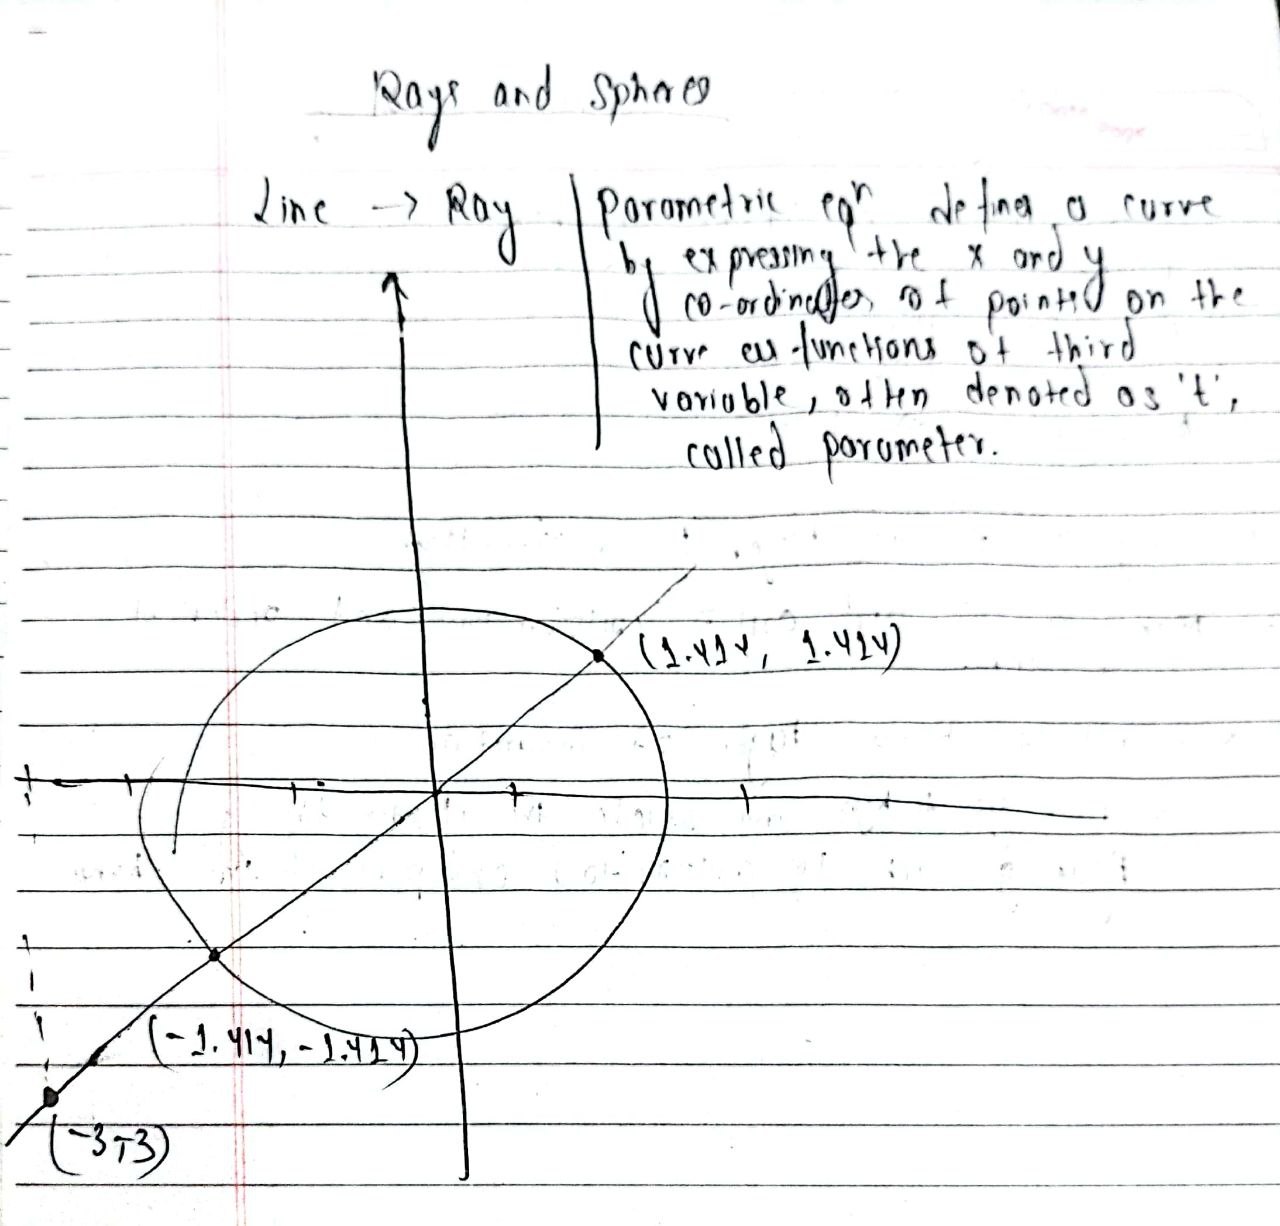 Rays and Spheres
Line → Ray
Parametric eqn defines a curve
by expressing the x and y
co-ordinates of points on the
curve as functions of third
variable, often denoted as 't',
called parameter.
(1.414, 1.414)
(-1.414, -1.414)
(-3,-3)